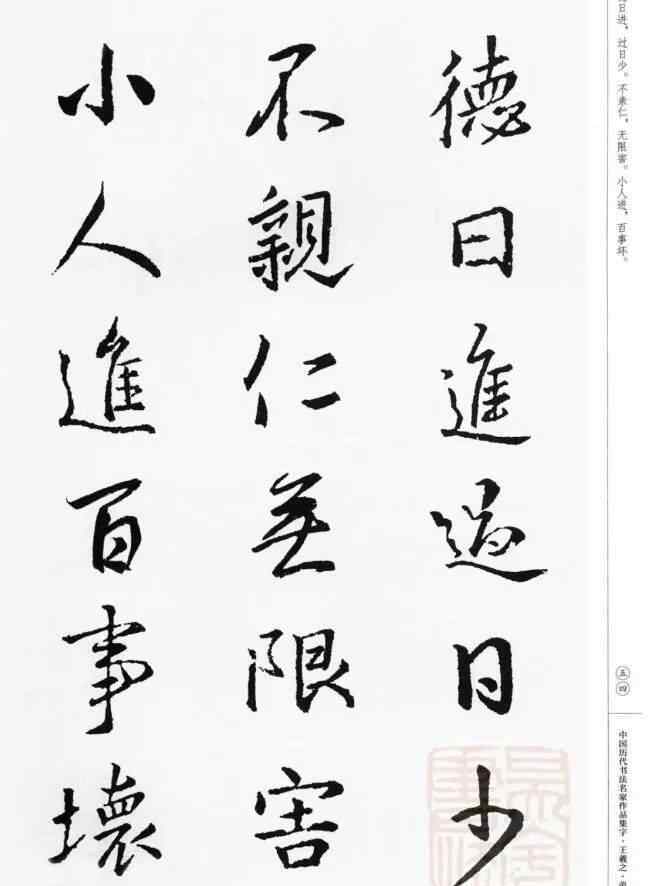 日进，过日少。不亲仁，无限害。小人进，百事坏。
五四
中国历代书法名家作品集字·王羲之·
德日進過日少
不親仁無限害
小人進百事壞